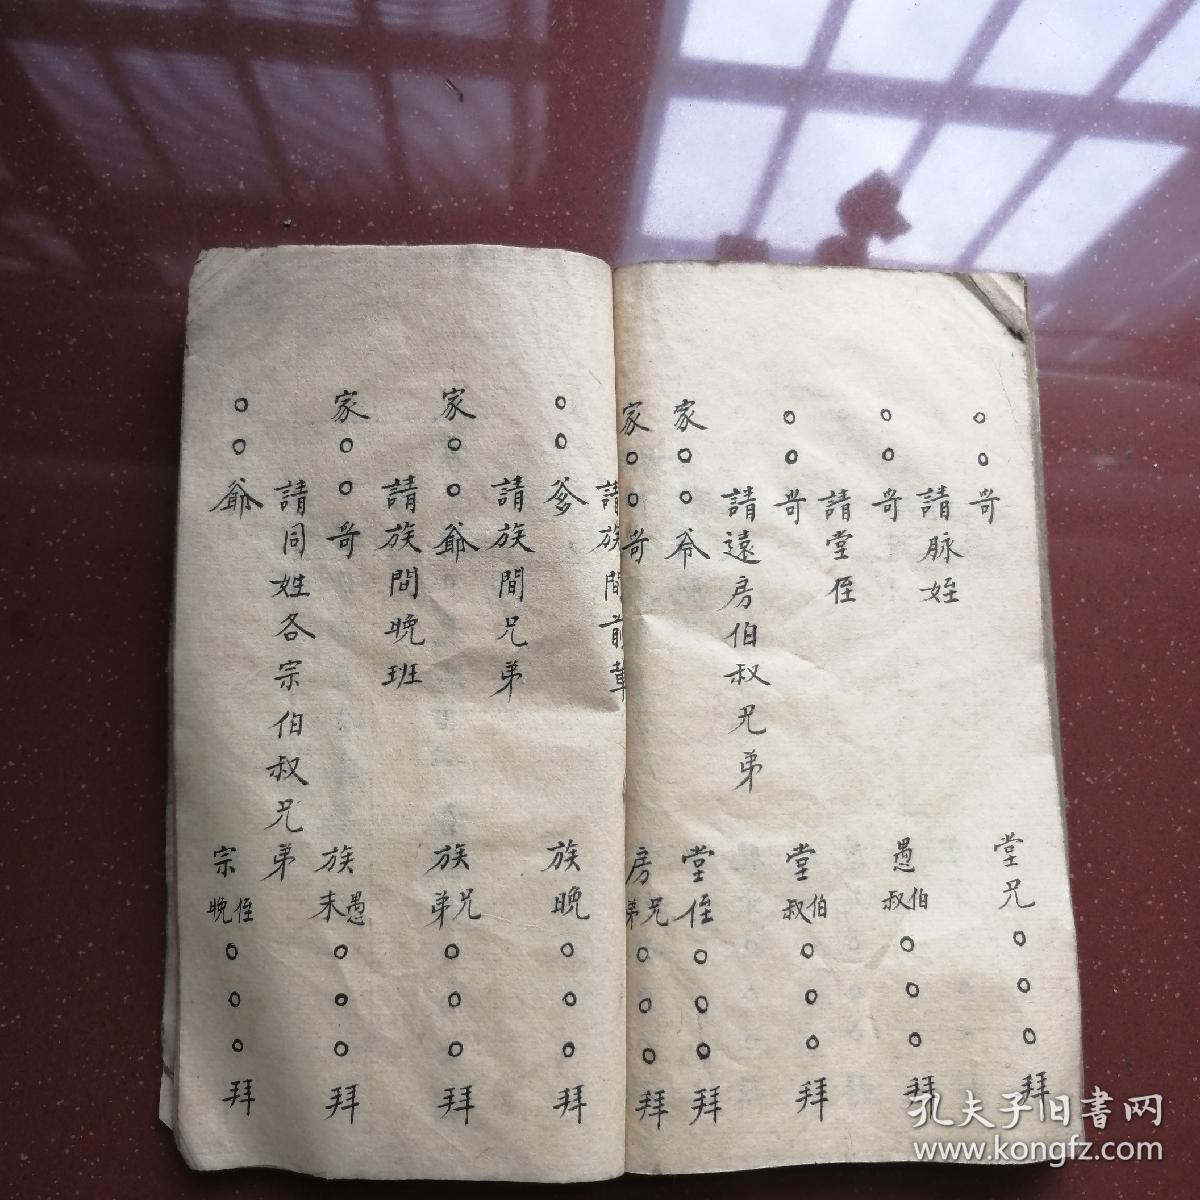 ○○哥　堂兄○○○拜
請脉姪
○○哥　愚伯叔○○○拜
請堂侄
○○哥　堂伯叔○○○拜
請遠房伯叔兄弟
家○○爷　堂侄○○○拜
家○○哥　房兄弟○○○拜
請族間前輩
○○爹　族晚○○○拜
請族間兄弟
家○○爺　族兄弟○○○拜
請族間晚班
家○○哥　族愚末○○○拜
請同姓各宗伯叔兄弟
○○爺　宗侄晚○○○拜
孔夫子旧書网
www.kongfz.com